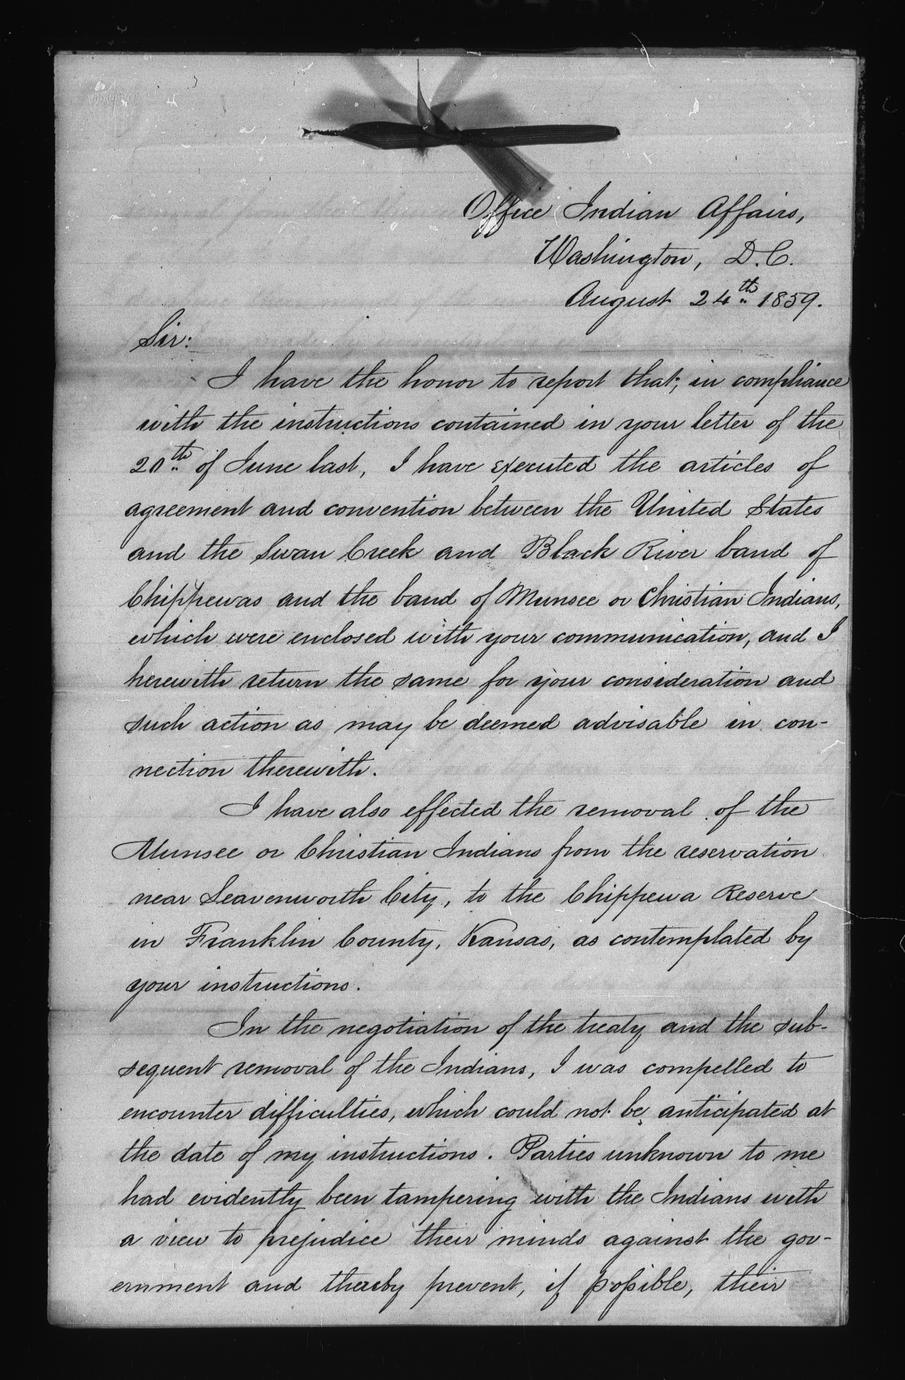 Office Indian Affairs,
Washington, D.C.
August 24th 1859.
Sir:
I have the honor to report that, in compliance
with the instructions contained in your letter of the
20th of June last, I have executed the articles of
agreement and convention between the United States
and the Swan Creek and Black River band of
Chippewas and the band of Munsee or Christian Indians,
which were enclosed with your communication, and I
herewith return the same for your consideration and
such action as may be deemed advisable in con-
nection therewith.
I have also effected the removal of the
Munsee or Christian Indians from the reservation
near Leavenworth City, to the Chippewa Reserve
in Franklin County, Kansas, as contemplated by
your instructions.
In the negotiation of the treaty and the sub-
sequent removal of the Indians, I was compelled to
encounter difficulties, which could not be anticipated at
the date of my instructions. Parties unknown to me
had evidently been tampering with the Indians with
a view to prejudice their minds against the gov-
ernment and thereby prevent, if possible, their